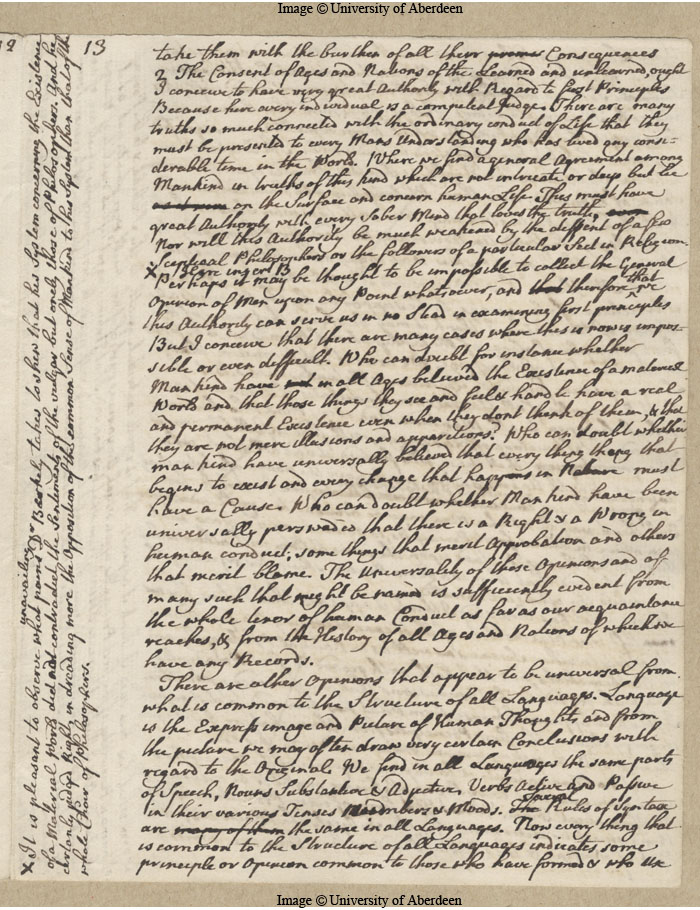 Image © University of Aberdeen
12
13
take them with the burthen of all their Consequences
2 The Consent of Ages and Nations of the Learned and unlearned, ought
I conceive to have very great Authority with Regard to first Principles
Because here every individual is a competent Judge. There are many
truths so much connected with the ordinary conduct of Life that they
must be presented to every Mans Understanding who has lived any consi-
derable time in the World. Where we find a general Agreement among
Mankind in truths of this kind which are not intricate or deep but lie
on the Surface and concern human Life. This must have
great Authority with every Sober Mind that loves the truth,
Nor will this Authority be much weakened by the dissent of a few
Sceptical Philosophers or the followers of a particular Sect in Religion.
x Here insert B
Perhaps it may be thought to be impossible to collect the General
Opinion of Men upon any Point whatsoever, and therefore that
this Authority can serve us in no Stead in examining first principles
But I conceive that there are many cases where this is now is impos-
sible or even difficult. Who can doubt for instance whether
Mankind have in all Ages believed the Existence of a material
World and that those things they see and feel & handle have a real
and permanent Existence even when they dont think of them, & that
they are not mere illusions and apparitions? Who can doubt whether
mankind have universally believed that every thing that
begins to exist and every change that happens in Nature must
have a Cause. Who can doubt whether Mankind have been
universally perswaded that there is a Right & a Wrong in
human conduct; some things that merit Approbation and others
that merit blame. The Universality of those Opinions and of
many such that might be named is sufficiently evident from
the whole tenor of human Conduct as far as our acquaintance
reaches, & from the History of all Ages and Nations of which we
have any Records.
There are other Opinions that appear to be universal from
what is common to the Structure of all Languages. Language
is the Express image and Picture of Human Thought, and from
the picture we may often draw very certain Conclusions with
regard to the Original. We find in all Languages the same parts
of Speech, Nouns Substantive & Adjective, Verbs Active and Passive
in their various Tenses Numbers & Moods. Several Rules of Syntax
are the same in all Languages. Now every thing that
is common to the Structure of all Languages indicates some
principle or Opinion common to those who have formed & who use
x It is pleasant to observe what unavailing pains Dr Berkely takes to shew that his System concerning the Existence
of a Material World did not contradict the Sentiments of the vulgar but only those of Philosophers. And he
certainly judged Right in dreading more the Opposition of the common Sense of Mankind to his System than that of the
whole Choir of Philosophers.
Image © University of Aberdeen